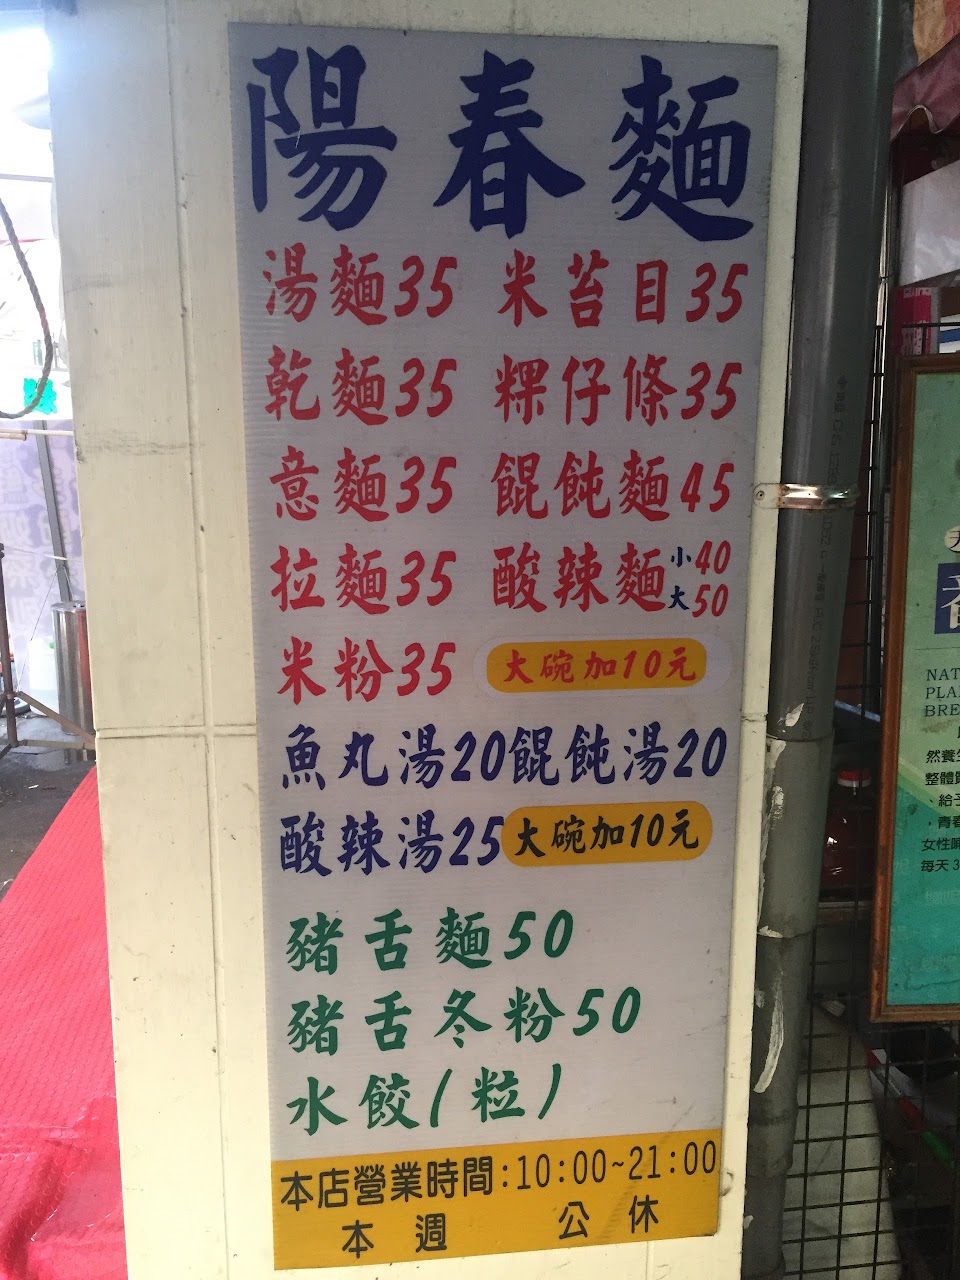 陽春麵
湯麵35 米苔目35
乾麵35 粿仔條35
意麵35 餛飩麵45
拉麵35 酸辣麵小40大50
米粉35 大碗加10元
魚丸湯20餛飩湯20
酸辣湯25大碗加10元
豬舌麵50
豬舌冬粉50
水餃(粒)
本店營業時間:10:00~21:00
本週 公休
NAT
PLA
BRE
然養生
整體
、給予
，青春
女性
每天3